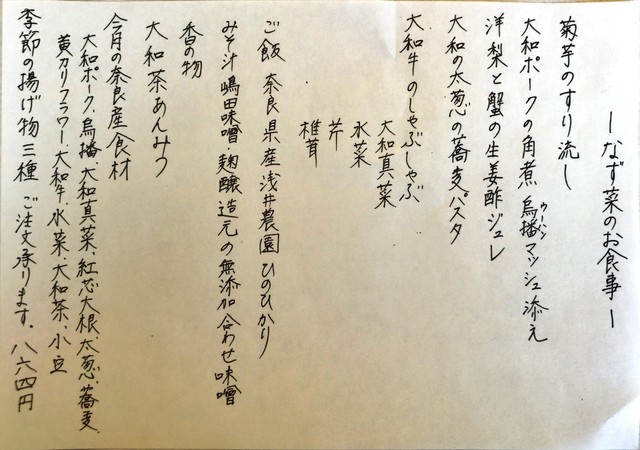 ーなず菜のお食事ー
菊芋のすり流し
大和ポークの角煮 烏播マッシュ添え
ウーハン
洋梨と蟹の生姜酢ジュレ
大和の太葱の蕎麦パスタ
大和牛のしゃぶしゃぶ
大和真菜
水菜
芹
椎茸
ご飯 奈良県産浅井農園ひのひかり
みそ汁 嶋田味噌・麹醸造元の無添加合わせ味噌
香の物
大和茶あんみつ
今月の奈良産食材
大和ポーク、烏播、大和真菜、紅芯大根、太葱、蕎麦、
黄カリフラワー、大和牛、水菜、大和茶、小豆
季節の揚げ物三種 ご注文承ります。八六四円